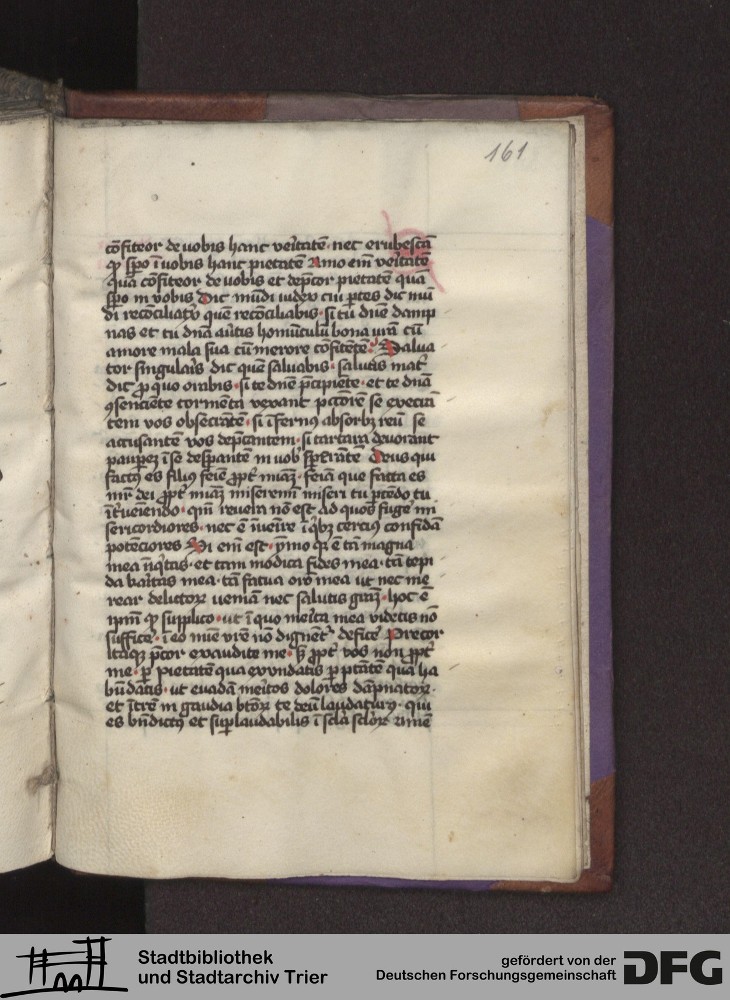 161
cōfiteor de uobis hanc veritatē · nec erubescā
qͥ sꝑo ī uobis hanc pietatē Amo eīm veritatē
quā cōfiteor de uobis et dep̄cor pietatē quā
sꝑo in vobis Dic mūdi iudex cui ꝑces dic mū
di recōciliatrͯ quē recōciliabis · si tu dn̄e damp
nas et tu dn̄a au̓tis homūculū bona ur̄a cū
amore mala sua cū merore cōfitētē · Salua
tor singularis dic quē saluabis · salutis mat̓
dic ꝓ quo orabis · si te dn̄e p̄cipiēte · et te dn̄a
ꝯsenciēte tormēta vexant pctōrē se execrā
tem vos obsecrātē · si īfernꝰ absorbꝫ reū se
accusantem vos dep̄cantem · si tartara deuorant
pauꝑeꝫ ī se desꝑantē in uob̓ sperātē Deus qui
factꝰ es filiꝰ feīe ꝓpt̓ mīaꝫ · feīa que facta es
mr̄ dei ꝓpt̓ mīaꝫ miseremī mis̓i tu p̄cēdo tu
īt̓ueīendo · qm̄ reuera nō est ad quos fuge̓ mi
sericordiores · nec ē īueīre ī qͥbꝫ cerciꝰ confidā
potēciores Si eīm est · ymo qꝛ ē tā magna
mea īiqͥtas · et tam modica fides mea · tā tepi
da karitas mea · tā fatua orō mea ut nec me
rear delictoꝝ ueniā nec salutis graꝫ · hoc ē
ip̄m qͥ supplico · ut ī quo merita mea videtis nō
suffice̓ · ī eo mīe vr̄e nō dignēt̓ defice̓ Precor
itaqꝫ p̄cor exaudite me · sꝫ ꝓpt̓ vos non ꝓpt̓
me · ꝑ pietatē qua exūdatis ꝑ ptātē qua ha
būdatis · ut euadā meritos dolores dāpnatoꝝ ·
et ītrē in gaudia btōꝝ te deū laudaturꝰ · qui
es bn̄dictꝰ et suꝑlaudabilis ī sc̄la sc̄loꝝ Amē
Stadtbibliothek
und Stadtarchiv Trier
gefördert von der
Deutschen Forschungsgemeinschaft
DFG